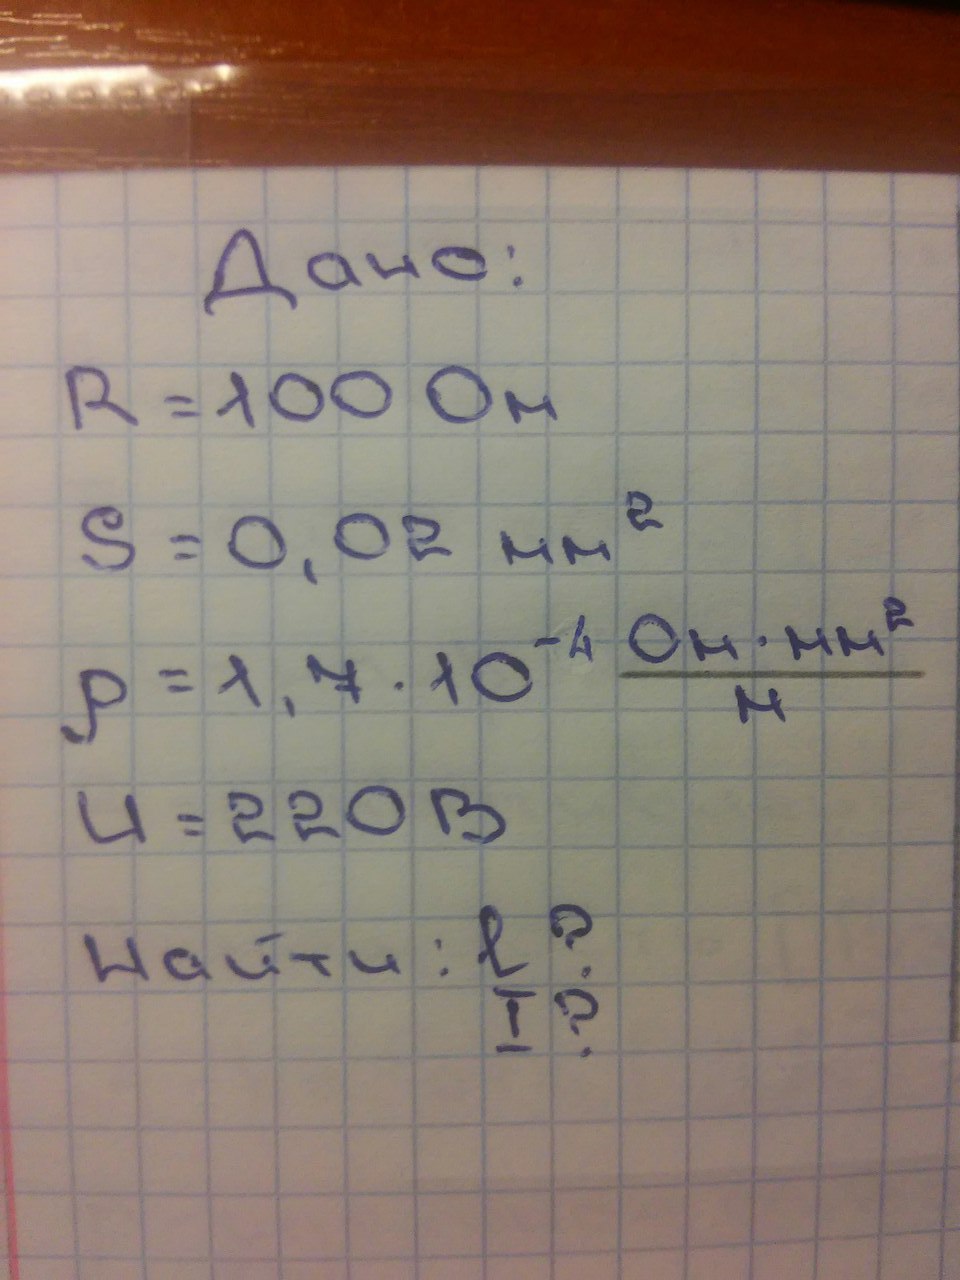 Дано:
R = 100 Ом
S = 0,02 мм²
ρ = 1,7 · 10⁻⁴ Ом · мм² / м
U = 220 В
Найти: l ?
I ?